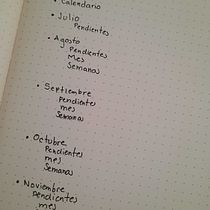 • Calendario
• Julio
Pendientes
• Agosto
Pendientes
Mes
Semanas
• Septiembre
Pendientes
mes
Semanas
• Octubre
Pendientes
mes
Semanas
• Noviembre
Pendientes
mes